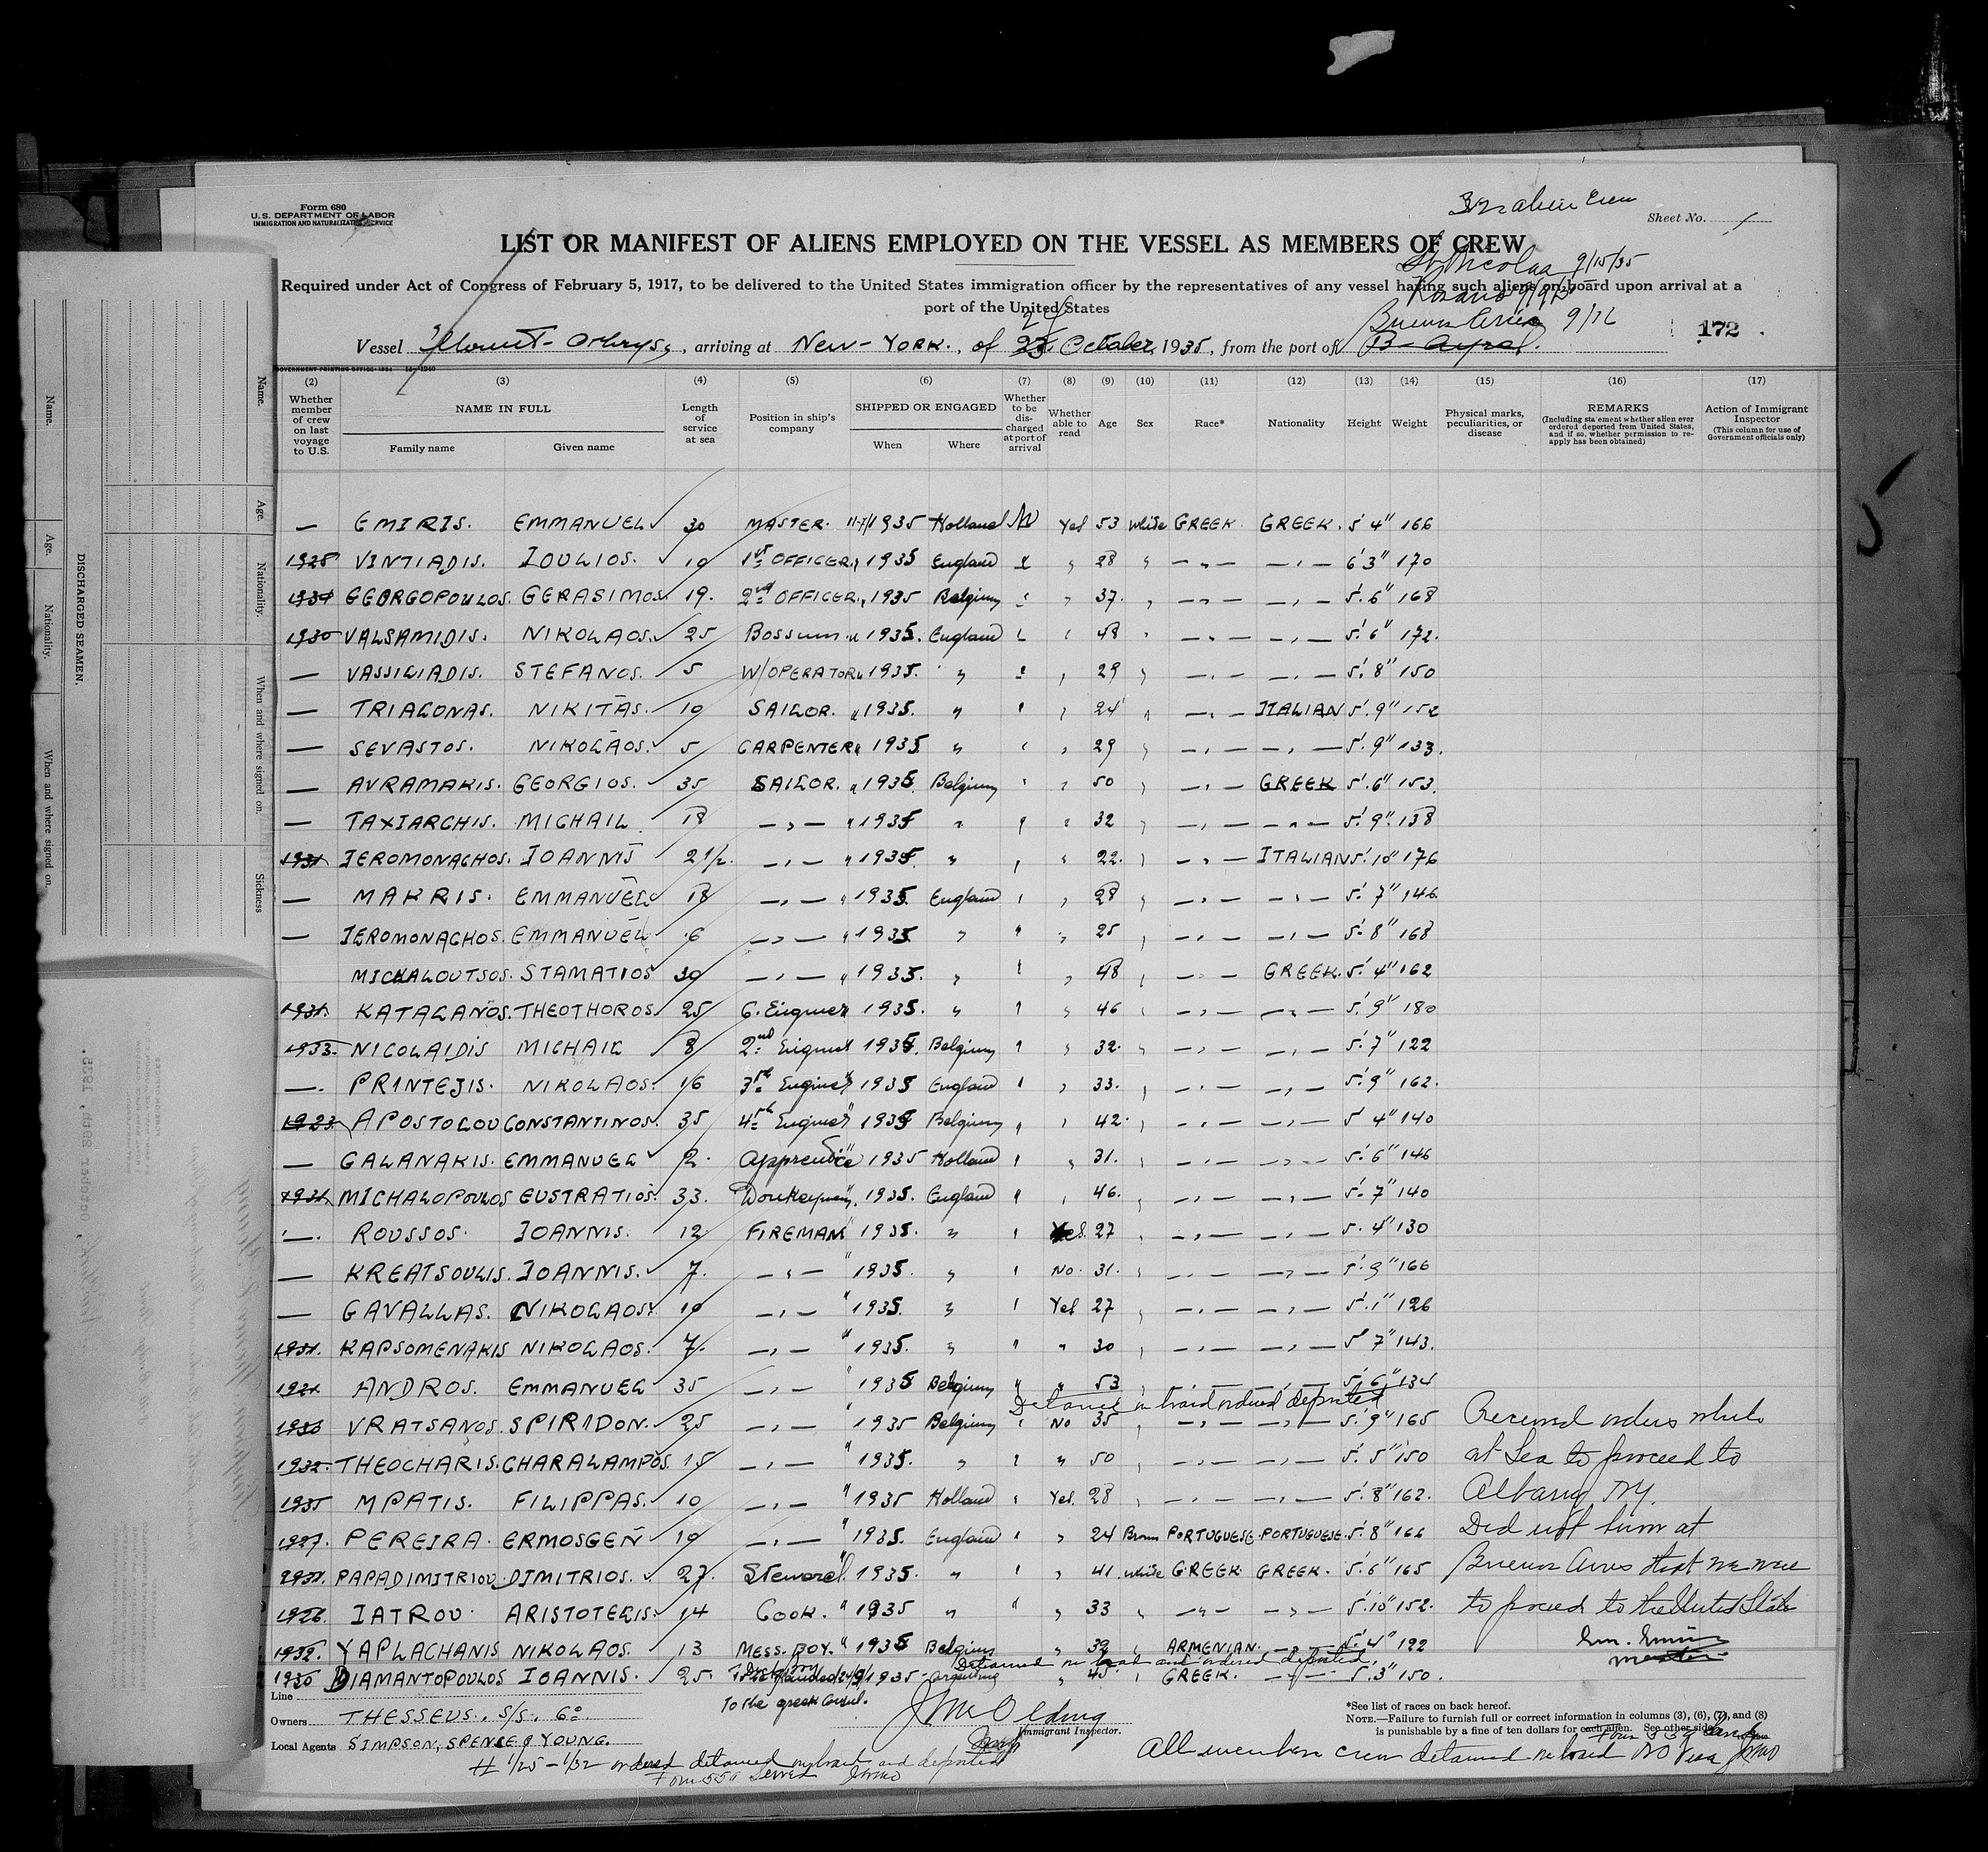 Form 680
U.S. DEPARTMENT OF LABOR
IMMIGRATION AND NATURALIZATION SERVICE
32 alien Crew
Sheet No. 1
LIST OR MANIFEST OF ALIENS EMPLOYED ON THE VESSEL AS MEMBERS OF CREW
St Nicolas 9/15/35
Required under Act of Congress of February 5, 1917, to be delivered to the United States immigration officer by the representatives of any vessel having such aliens on board upon arrival at a
port of the United States
Buenos Aires 9/16
172
Vessel Mount-Othrys, arriving at New-York., of 24 October, 1935, from the port of B-Ayres.
GOVERNMENT PRINTING OFFICE: 1934
(2) (3) (4) (5) (6) (7) (8) (9) (10) (11) (12) (13) (14) (15) (16) (17)
Whether member of crew on last voyage to U.S. NAME IN FULL Family name Given name Length of service at sea Position in ship's company SHIPPED OR ENGAGED When Where Whether to be discharged at port of arrival Whether able to read Age Sex Race* Nationality Height Weight Physical marks, peculiarities, or disease REMARKS (Including statement whether alien ever ordered deported from United States, and if so, whether permission to reapply has been obtained) Action of Immigrant Inspector (This column for use of Government officials only)
— EMIRIS. EMMANUEL 30 MASTER. 11-7/1935 Holland No Yes 53 White GREEK GREEK. 5' 4" 166
1928 VINTIADIS. IOULIOS. 10 1st OFFICER. " 1935 England " " 28 " — " — — " — 6' 3" 170
GEORGOPOULOS. GERASIMOS 19. 2nd OFFICER. " 1935 Belgium " " 37. " — " — — " — 5'. 6" 168
1930 VALSAMIDIS. NIKOLAOS. 25 Bossum " 1935. England " " 48 " — " — — " — 5'. 6" 172.
— VASSILIADIS. STEFANOS. 5 W/OPERATOR " 1935. " " " 29 " — " — — " — 5'. 8" 150
— TRIAGONAS. NIKITAS. 10 SAILOR. " 1935. " " " 24 " — " — ITALIAN 5'. 9" 152
— SEVASTOS. NIKOLAOS. 5 CARPENTER " 1935 " " " 29 " — " — — " — 5'. 9" 133.
— AVRAMAKIS. GEORGIOS. 35 SAILOR. " 1935. Belgium " " 50 " — " — GREEK 5'. 6" 153.
— TAXIARCHIS. MICHAIL 18 — " — " 1935 " " " 32 " — " — — " — 5'. 9". 138
1931 IEROMONACHOS. IOANNIS 2 1/2. — " — " 1935. " " " 22. " — " — ITALIAN 5'. 10" 176
— MAKRIS. EMMANUEL 18 — " — " 1935. England " " 28 " — " — — " — 5'. 7" 146
— IEROMONACHOS. EMMANUEL 6 — " — " 1935 " " " 25 " — " — — " — 5'. 8" 168
MICHALOUTSOS. STAMATIOS 30 — " — " 1935. " " " 48 " — " — GREEK. 5'. 4" 162
1931. KATAGANOS. THEOTHOROS. 25 C. Engineer 1935. " " " 46 " — " — — " — 5'. 9" 180
1933. NICOLAIDIS MICHAIL 8 2nd Engineer 1935. Belgium " " 32. " — " — — " — 5'. 7" 122
—. PRINTEJIS. NIKOLAOS. 16 3rd Engineer 1935 England " " 33. " — " — — " — 5'. 9" 162.
1923. APOSTOLOU CONSTANTINOS. 35 4th Engineer 1935 Belgium " " 42. " — " — — " — 5' 4" 140
— GALANAKIS. EMMANUEL 2. Apprentice 1935 Holland " " 31. " — " — — " — 5'. 6" 146
1931. MICHALOPOULOS EUSTRATIOS. 33. Donkeyman. 1935. England " " 46. " — " — — " — 5'. 7" 140
—. ROUSSOS. IOANNIS. 12 FIREMAN " 1935. " " Yes. 27 " — " — — " — 5. 4" 130
— KREATSOULIS. IOANNIS. 7. — " — " 1935. " " No. 31. " — " — — " — 5'. 9" 166
— GAVALLAS. NIKOLAOS. 10 — " — " 1935. " " Yes 27 " — " — — " — 5'. 1" 126
1931. KAPSOMENAKIS NIKOLAOS. 7. — " — " 1935. " " " 30 " — " — — " — 5' 7" 143.
ANDROS. EMMANUEL 35 — " — " 1935 Belgium " " 53 " — " — — " — 5'. 6" 134
Detained on board ordered deported
1930 VRATSANOS. SPIRIDON. 25 — " — " 1935 Belgium " No 35 " — " — — " — 5'. 9" 165 Received orders while
1932. THEOCHARIS. CHARALAMPOS. 15 — " — " 1935. " " " 50 " — " — — " — 5'. 5" 150 at Sea to proceed to
1935 MPATIS. FILIPPAS. 10 — " — " 1935 Holland " Yes. 28 " — " — — " — 5'. 8" 162. Albany NY.
1927. PEREIRA. ERMOSGEN 10 — " — " 1935. England " " 24 Brown PORTUGUESE. PORTUGUESE. 5'. 8" 166 Did not know at
PAPADIMITRIOU. DIMITRIOS. 27. Steward. 1935. " " " 41. White GREEK GREEK. 5'. 6" 165 Buenos Aires that we were
1926. IATROU. ARISTOTELIS. 14 Cook. " 1935 " " " 33 " — " — — " — 5'. 10" 152. to proceed to the United States
1932. YAPLACHANIS NIKOLAOS. 13 MESS. BOY. " 1935 Belgium " 39 " ARMENIAN. — " — 5'. 4" 122 Em. Emiris
Detained on board and ordered deported. Master
DIAMANTOPOULOS IOANNIS. 25. 1935 Argentina " 45. " GREEK. — " — 5'. 3" 150.
To the greek Consul.
Line
Owners THESSEUS. S/S. Co.
Local Agents SIMPSON, SPENCE & YOUNG.
Immigrant Inspector.
*See list of races on back hereof.
NOTE.—Failure to furnish full or correct information in columns (3), (6), (7), and (8)
is punishable by a fine of ten dollars for each alien. See other side.
# 1/25 - 1/32 ordered detained on board and deported
Form 559 Served
All members crew detained on board no visa
DISCHARGED SEAMEN.
Name.
Age.
Nationality.
When and where signed on.
Sickness